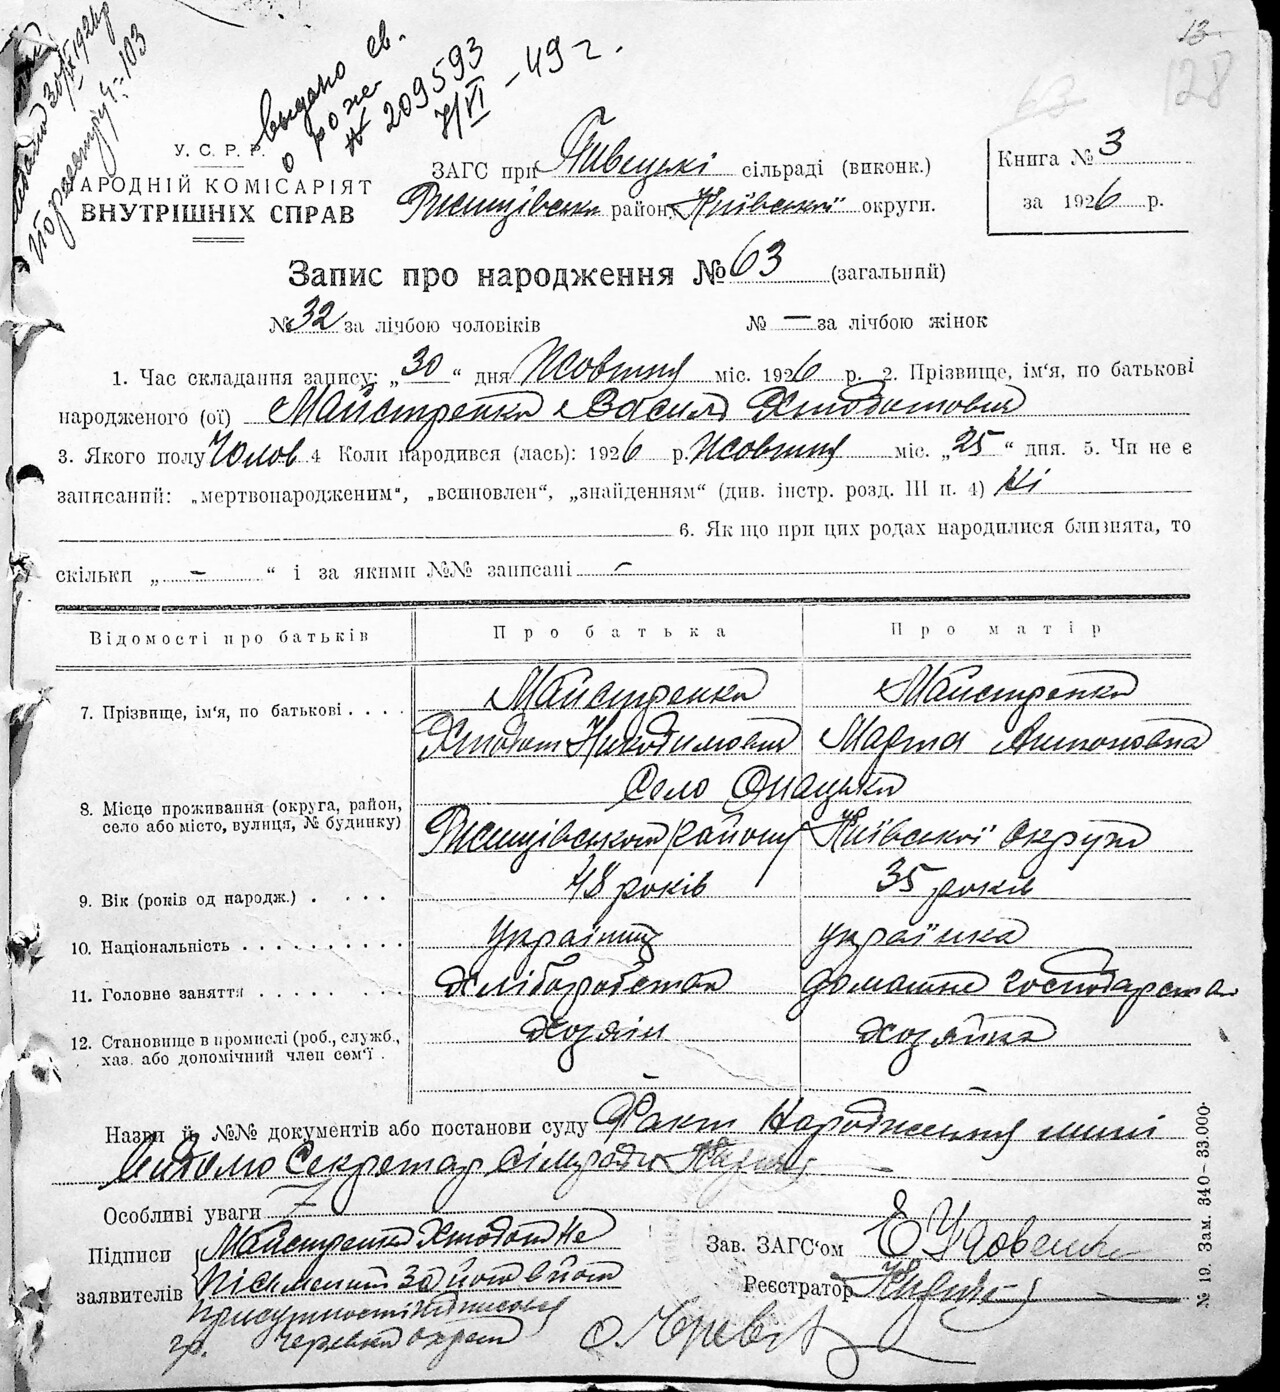 выдано св.
о рож.
№ 209593
7/VI - 49 г.
128
У. С. Р. Р.
НАРОДНІЙ КОМІСАРІЯТ
ВНУТРІШНІХ СПРАВ
ЗАГС при Пивецькі сільраді (виконк.)
району Київської округи.
Книга № 3
за 1926 р.
Запис про народження № 63 (загальний)
№ 32 за лічбою чоловіків
№ — за лічбою жінок
1. Час складання запису: „30“ дня Жовтня міс. 1926 р. 2. Прізвище, ім'я, по батькові
народженого (ої) Майстренка Василь Хтодотовия
3. Якого полу Чолов 4 Коли народився (лась): 1926 р. Жовтня міс. „25“ дня. 5. Чи не є
записаний: „мертвонародженим“, „всиновлен“, „знайденням“ (див. інстр. розд. III п. 4) Ні
6. Як що при цих родах народилися близнята, то
скільки „ - “ і за якими №№ записані -
Відомості про батьків
Про батька
Про матір
7. Прізвище, ім'я, по батькові . . . .
Майстренко
Хтодот Никодимовия
Майстренка
Марта Антоновна
8. Місце проживання (округа, район,
село або місто, вулиця, № будинку)
Село
району Київської округи
9. Вік (років од народж.) . . . .
48 років
35 років
10. Національність . . . . . . . . . .
Українец
українка
11. Головне заняття . . . . . . .
Хліборобство
домашне господарство
12. Становище в промислі (роб., служб.,
хаз. або допомічний член сем'ї .
Хозяін
Хозяйка
Назви й №№ документів або постанови суду Факт Народження мині
Видомо Секретар Сільради
Особливі уваги
Підписи
заявителів
Майстренко Хтодот Не
письменний за його в його
присутности підписовся
гр. Черевко
Зав. ЗАГС'ом Е Удовенко
Реєстратор
№ 19. Зам. 340—33.000·